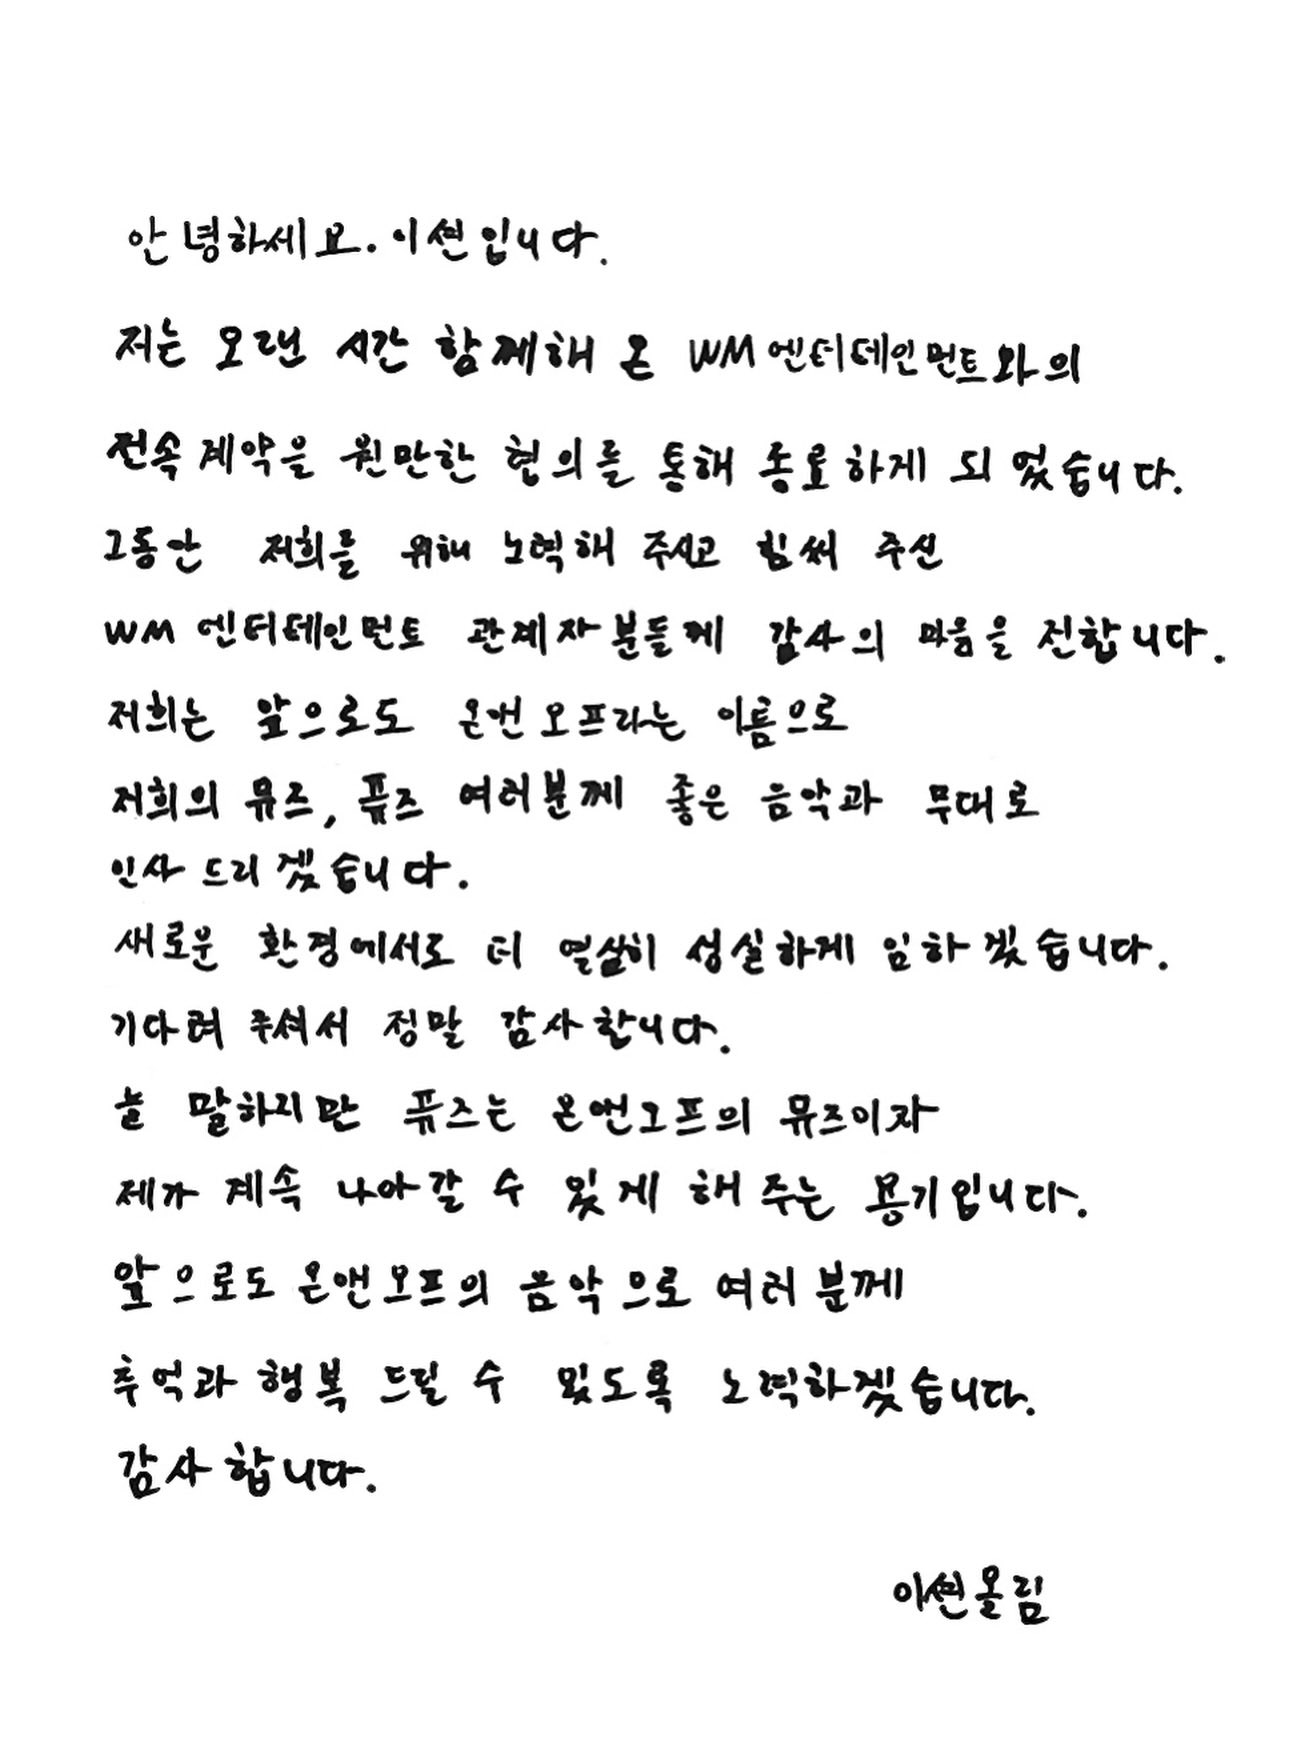 안녕하세요. 이션입니다.
저는 오랜 시간 함께해 온 WM엔터테인먼트와의
전속계약을 원만한 협의를 통해 종료하게 되었습니다.
그동안 저희를 위해 노력해 주시고 힘써 주신
WM 엔터테인먼트 관계자분들께 감사의 마음을 전합니다.
저희는 앞으로도 온앤오프라는 이름으로
저희의 뮤즈, 퓨즈 여러분께 좋은 음악과 무대로
인사 드리겠습니다.
새로운 환경에서도 더 열심히 성실하게 임하겠습니다.
기다려 주셔서 정말 감사합니다.
늘 말하지만 퓨즈는 온앤오프의 뮤즈이자
제가 계속 나아갈 수 있게 해 주는 용기입니다.
앞으로도 온앤오프의 음악으로 여러분께
추억과 행복 드릴 수 있도록 노력하겠습니다.
감사합니다.
이션올림